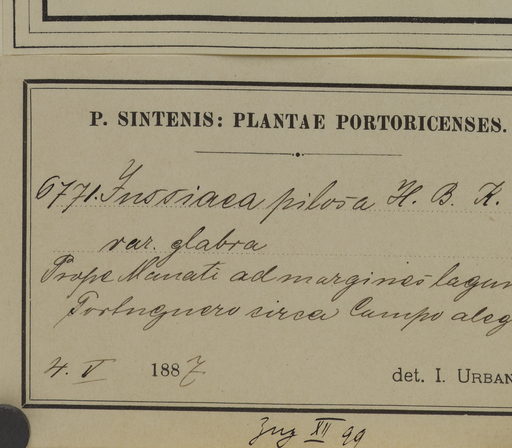 P. SINTENIS: PLANTAE PORTORICENSES.
6771. Jussiaea pilosa H. B. K.
var. glabra
Prope Manati ad margines lagun
Tortuguero circa Campo aleg
4. V 1887
det. I. URBAN
XII 99